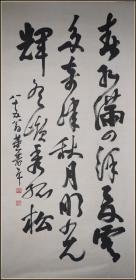 春水滿四澤夏雲
多奇峰秋月明光
輝冬嶺秀孤松
八十五翁